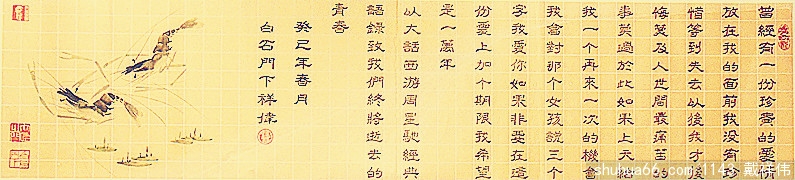 曾經有一份珍的愛情
放在我的面前我沒有珍
惜等到失去以後我才後
悔莫及人世間最痛苦的
事莫過於此如果上天給
我一个再來一次的機會
我會對那个女孩說三个
字我愛你如果非要在這
份愛上加个期限我希望
是一萬年
以大話西游周星馳經典
語錄致我們終將逝去的
青春
癸巳年春月
白石門下祥偉
shuhua66.com/1143